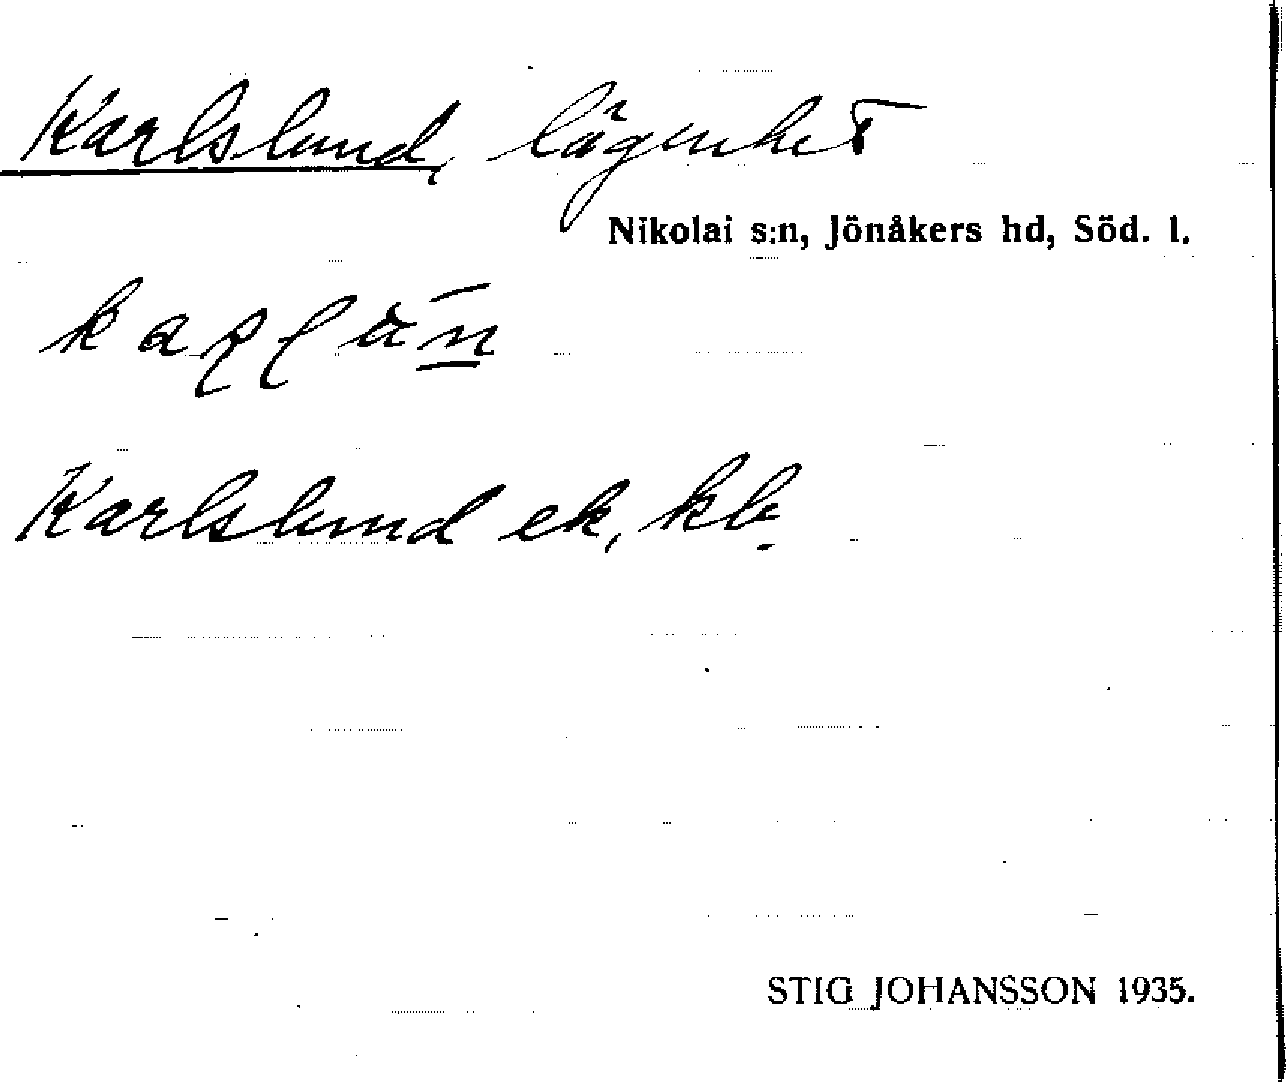 Karlslund, lägenhet
Nikolai s:n, Jönåkers hd, Söd. l.
Karlslund ek, kb.
STIG JOHANSSON 1935.